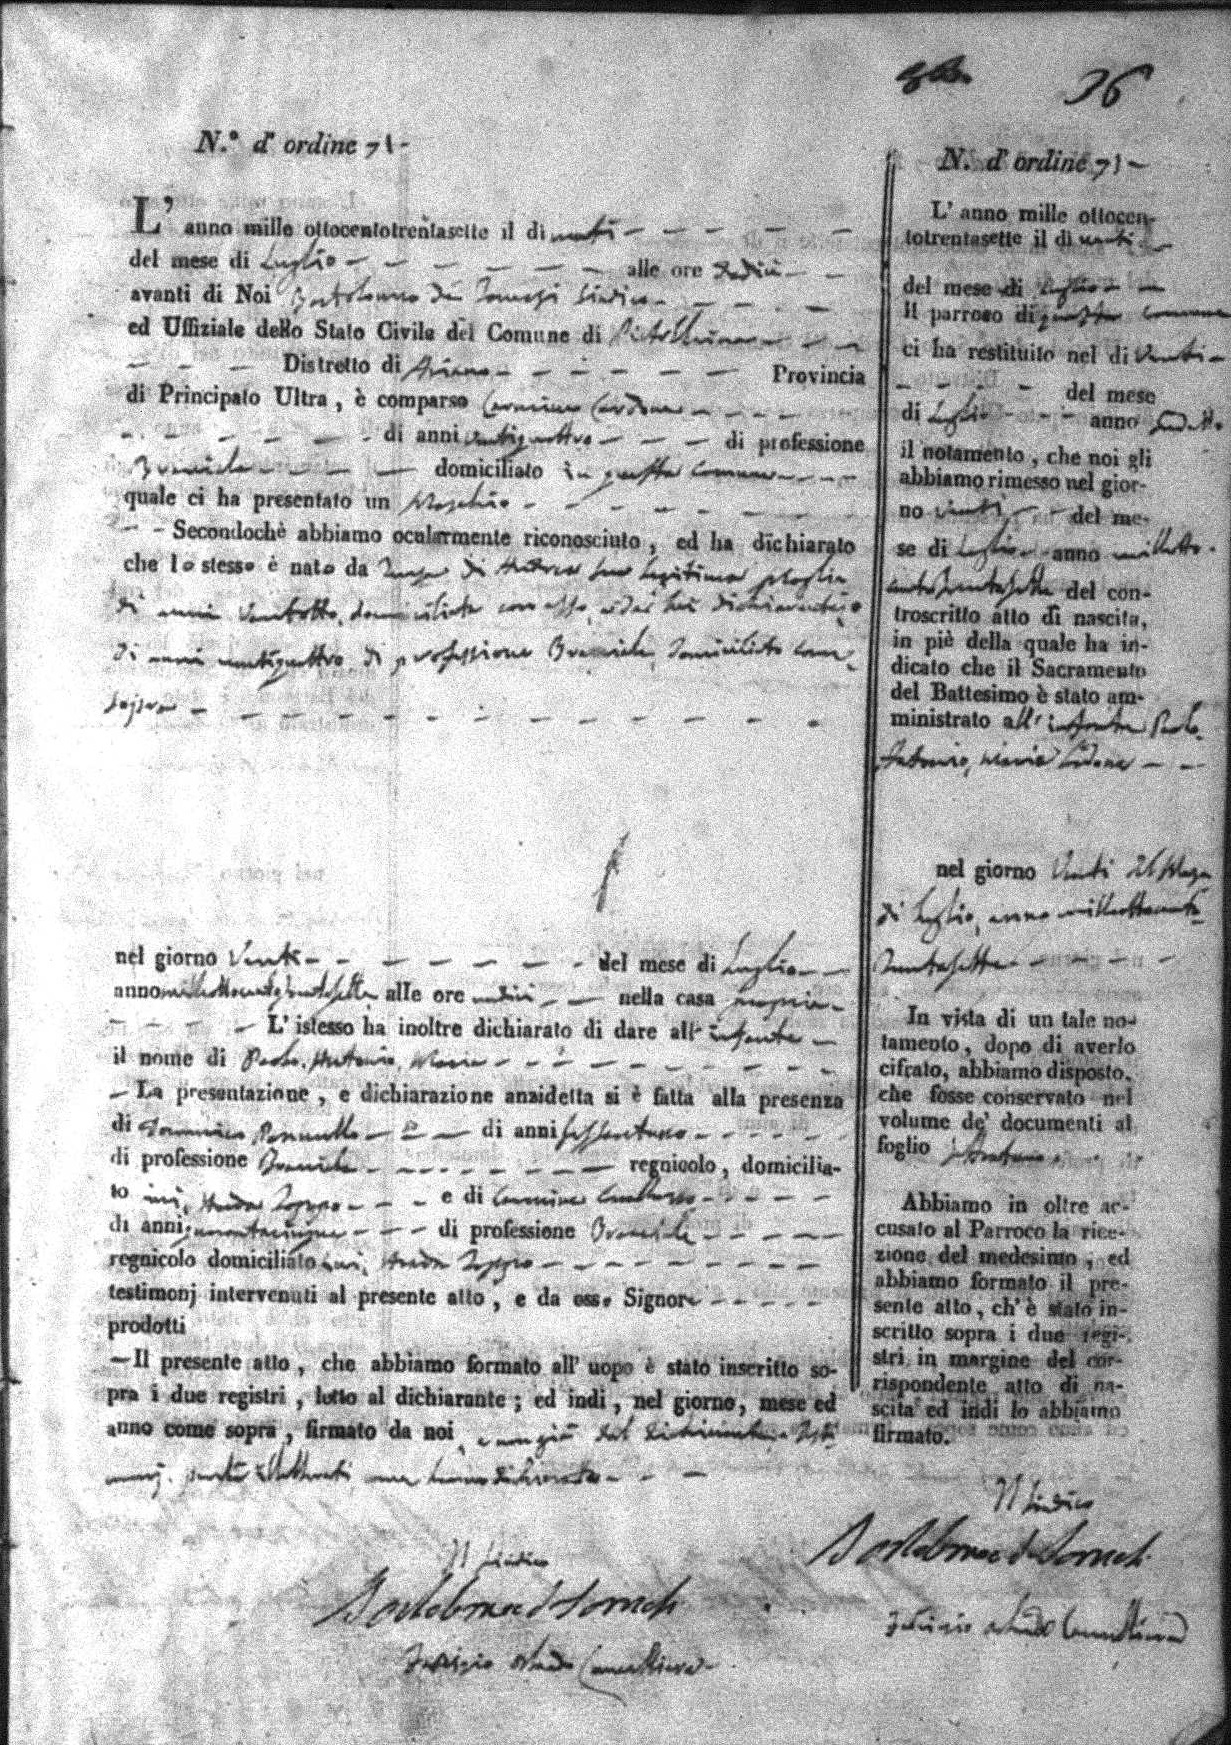 36
N.° d' ordine 71-
L' anno mille ottocentotrentasette il dì venti
del mese di Luglio alle ore sedici
avanti di Noi Bartolomeo de Tomasi Sindaco
ed Uffiziale dello Stato Civile del Comune di
Distretto di Ariano Provincia
di Principato Ultra, è comparso Carmine Cardone
di anni ventiquattro di professione
Bracciale domiciliato in questo comune
quale ci ha presentato un Maschio
Secondochè abbiamo ocularmente riconosciuto, ed ha dichiarato
che lo stesso è nato da di Andrea sua legittima moglie
di anni ventotto, domiciliata con esso, e da lui dichiarante
di anni ventiquattro di professione Bracciale, domiciliato come
sopra
nel giorno Venti del mese di Luglio
anno milleottocentotrentasette alle ore undici nella casa propria
L' istesso ha inoltre dichiarato di dare all' infante
il nome di Paolo, Antonio, Maria
La presentazione, e dichiarazione anzidetta si è fatta alla presenza
di Domenico di anni sessantuno
di professione Bracciale regnicolo, domicilia-
to ivi, Strada Zoppo e di Carmine
di anni quarantacinque di professione Bracciale
regnicolo domiciliato ivi, Strada Zoppo
testimonj intervenuti al presente atto, e da esso Signore
prodotti
Il presente atto, che abbiamo formato all' uopo è stato inscritto so-
pra i due registri, letto al dichiarante; ed indi, nel giorno, mese ed
anno come sopra, firmato da noi, e non già dal dichiarante, e testi-
monj perché illetterati come hanno dichiarato
Il Sindaco
Bartolomeo de Tomasi
Cancelliere
N. d' ordine 71
L' anno mille ottocen-
totrentasette il dì venti
del mese di Luglio
Il parroco di questo comune
ci ha restituito nel dì Venti
del mese
di Luglio anno sudetto
il notamento, che noi gli
abbiamo rimesso nel gior-
no venti del me-
se di Luglio anno milleotto-
centotrentasette del con-
troscritto atto di nascita,
in piè della quale ha in-
dicato che il Sacramento
del Battesimo è stato am-
ministrato all' infante Paolo
Antonio, Maria Cardone
nel giorno Venti del Mese
di Luglio, anno milleottocento
trentasette
In vista di un tale no-
tamento, dopo di averlo
cifrato, abbiamo disposto,
che fosse conservato nel
volume de' documenti al
foglio
Abbiamo in oltre ac-
cusato al Parroco la rice-
zione del medesimo, ed
abbiamo formato il pre-
sente atto, ch' è stato in-
scritto sopra i due regi-
stri in margine del cor-
rispondente atto di na-
scita ed indi lo abbiamo
firmato.
Il Sindaco
Bartolomeo de Tomasi
Cancelliere